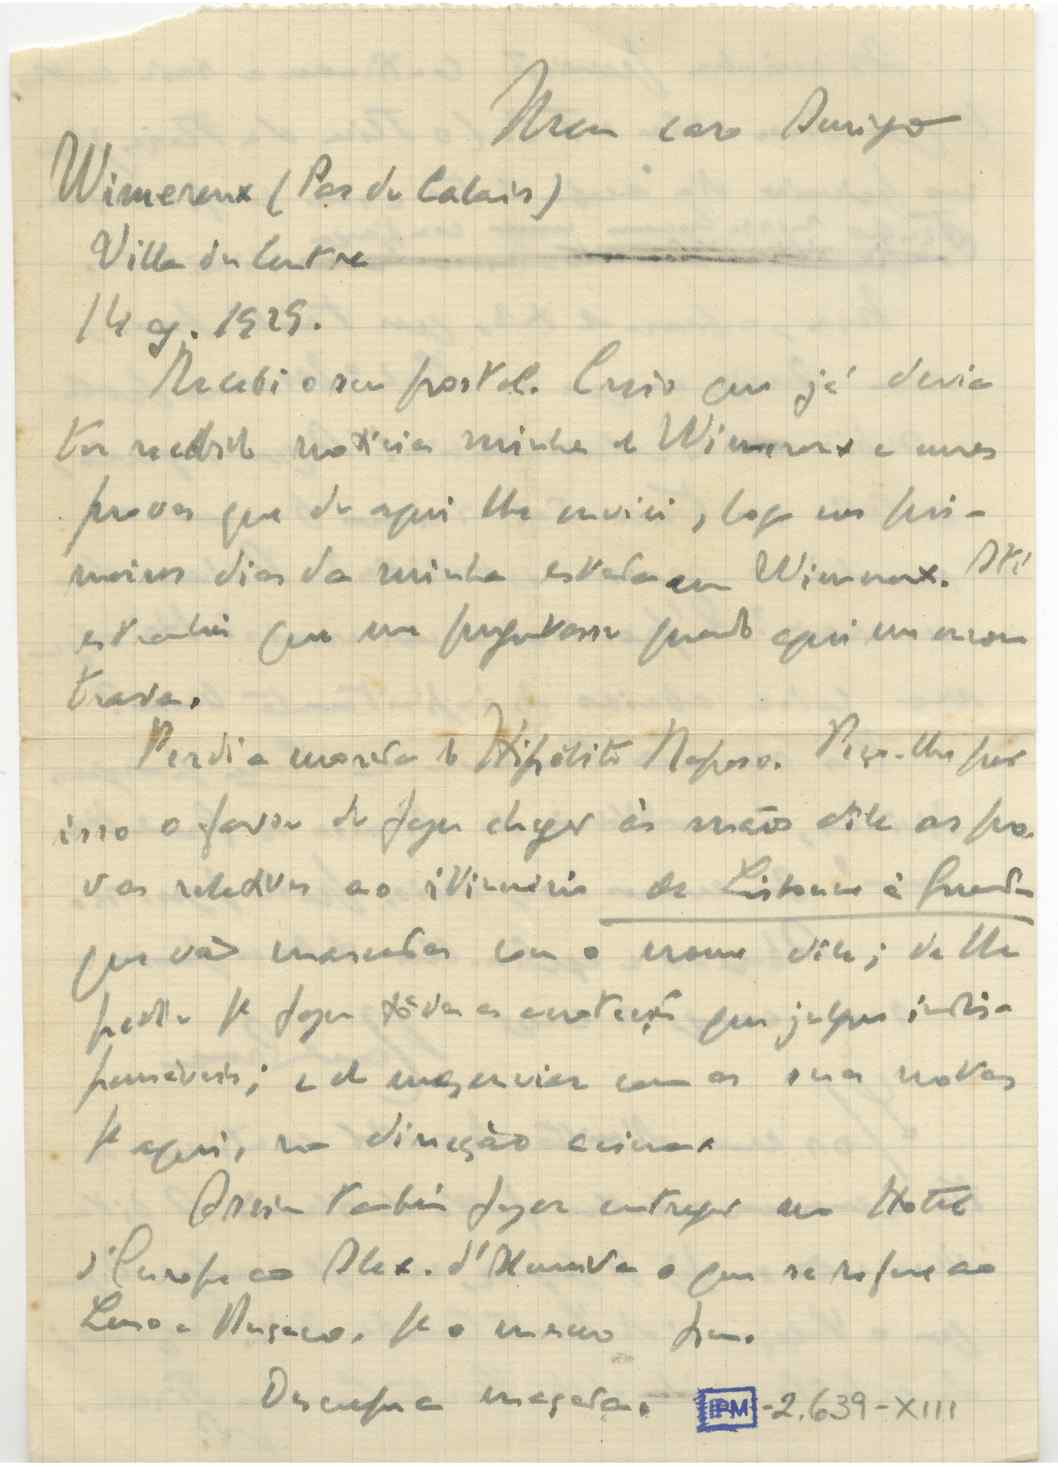 Meu caro Amigo
Wimereux (Pas du Calais)
Villa du Centre
14 ag. 1929.
Recebi o seu postal. Creio que já devia
ter recebido notícias minhas de Wimereux e umas
provas que de aqui lhe enviei, logo nos pri-
meiros dias da minha estada em Wimereux. Até
estranhei que me perguntasse quando aqui me encon
trava.
Perdi a morada do Hipólito Raposo. Peço-lhe por
isso o favor de fazer chegar às mãos dele as pro-
vas relativas ao itinerário de Lisboa à Guarda
que vão marcadas com o nome dele; de lhe
pedir p.a fazer tôdas as anotações que julgue indis-
pensáveis; e de enviar com as suas notas
p.a aqui, na direcção acima.
Assim também fazer entregar no Hotel
d'Europe ao Alex. d'Almeida o que se refere ao
Luso e Bussaco, p.a o mesmo fim.
Desculpe a maçada.
IPM -2.639-XIII